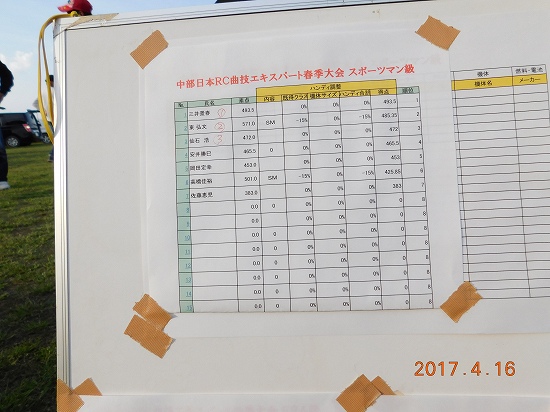 中部日本RC曲技エキスパート春季大会 スポーツマン級
ハンディ調整
№ 氏名 素点 内容 既得クラス 機体サイズ ハンディ合計 得点 順位
1 三井 ① 493.5 0% 0% 0% 493.5 1
2 東 弘文 ② 571.0 SM -15% 0% -15% 485.35 2
3 仙石 浩 ③ 472.0 0% 0% 0% 472 3
4 安井 465.5 0 0% 0% 0% 465.5 4
5 岡田定幸 453.0 0% 0% 0% 453 5
6 高橋佳裕 501.0 SM -15% 0% -15% 425.85 6
7 佐藤恵児 383.0 0% 0% 0% 383 7
8 0.0 0 0% 0% 0% 0 8
9 0.0 0 0% 0% 0% 0 8
10 0.0 0 0% 0% 0% 0 8
11 0.0 0 0% 0% 0% 0 8
12 0.0 0 0% 0% 0% 0 8
13 0.0 0 0% 0% 0% 0 8
14 0.0 0 0% 0% 0% 0 8
15 0.0 0 0% 0% 0% 0 8
機体 燃料・電池
機体名 メーカー
2017.4.16